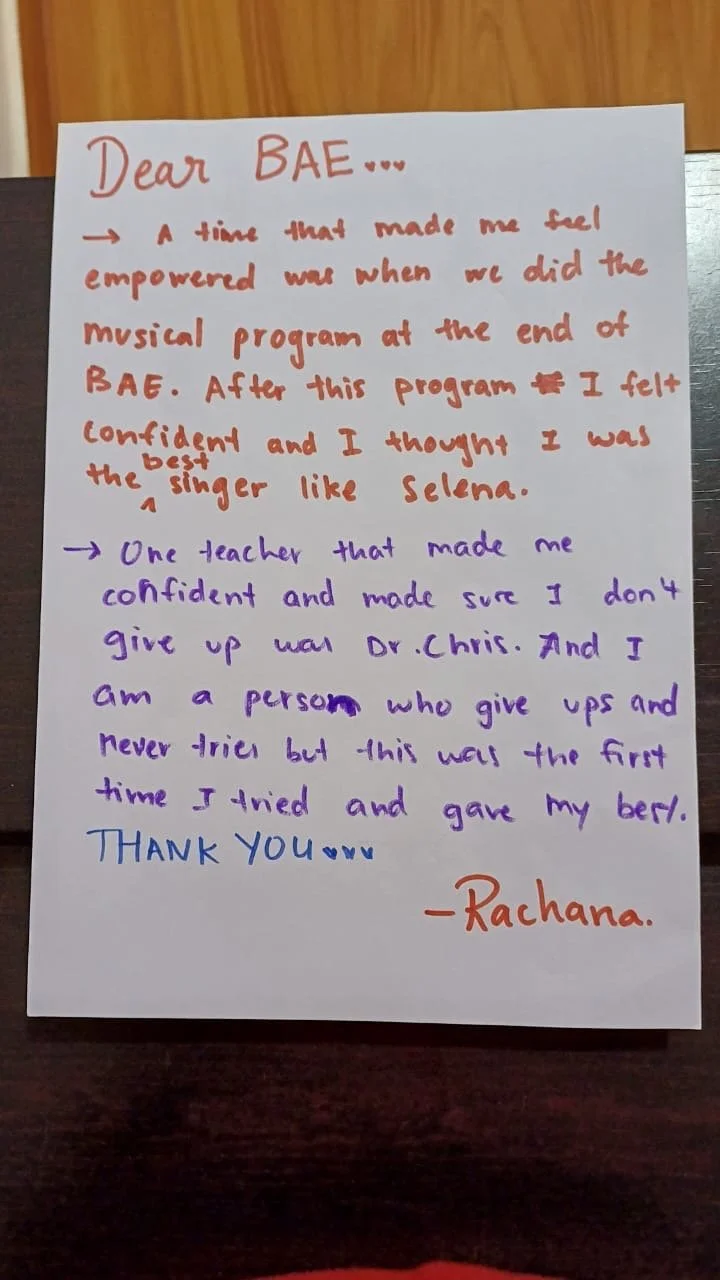 Dear BAE...
→ A time that made me feel
empowered was when we did the
musical program at the end of
BAE. After this program I felt
confident and I thought I was
the best singer like Selena.
→ One teacher that made me
confident and made sure I don't
give up was Dr. Chris. And I
am a person who give ups and
never tries but this was the first
time I tried and gave my best.
THANK YOU
-Rachana.